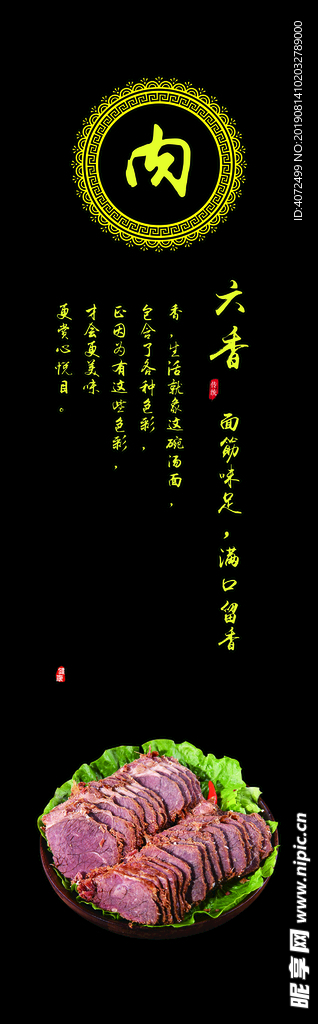 肉
六香
传统
面筋味足，满口留香
香，生活就象这碗汤面，
包含了各种色彩，
正因为有这些色彩，
才会更美味
更赏心悦目。
ID:4072499 NO:20190814102032789000
昵享网 www.nipic.cn